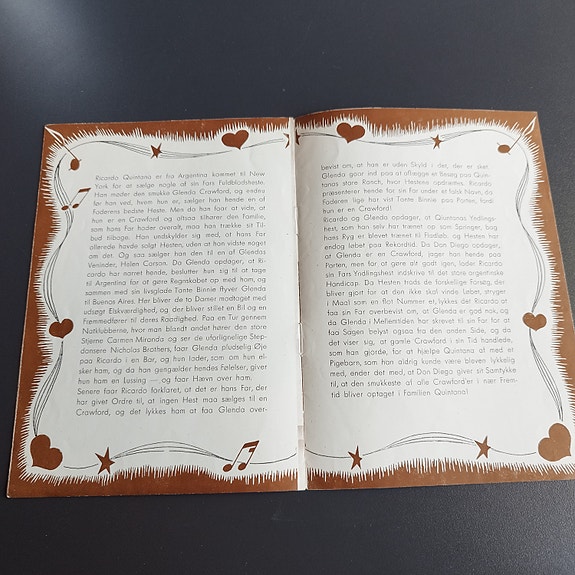 Ricardo Quintana er fra Argentina kommet til New
York for at sælge nogle af sin Fars Fuldblodsheste.
Han møder den smukke Glenda Crawford, og endnu
før han ved, hvem hun er, sælger han hende en af
Faderens bedste Heste. Men da han faar at vide, at
hun er en Crawford og altsaa tilhører den Familie,
som hans Far hader overalt, maa han trække sit Til-
bud tilbage. Han undskylder sig med, at hans Far
allerede havde solgt Hesten, uden at han vidste noget
om det. Og saa sælger han den til en af Glendas
Veninder, Helen Carson. Da Glenda opdager, at Ri-
cardo har narret hende, beslutter hun sig til at tage
til Argentina for at gøre Regnskabet op med ham, og
sammen med sin livsglade Tante Binnie flyver Glenda
til Buenos Aires. Her bliver de to Damer modtaget med
udsøgt Elskværdighed, og der bliver stillet en Bil og en
Fremmedfører til deres Raadighed. Paa en Tur gennem
Natklubberne, hvor man blandt andet hører den store
Stjerne Carmen Miranda og ser de uforlignelige Step-
dansere Nicholas Brothers, faar Glenda pludselig Øje
paa Ricardo i en Bar, og hun lader, som om hun el-
sker ham, og da han gengælder hendes Følelser, giver
hun ham en Lussing — og faar Hævn over ham.
Senere faar Ricardo forklaret, at det er hans Far, der
har givet Ordre til, at ingen Hest maa sælges til en
Crawford, og det lykkes ham at faa Glenda over-
bevist om, at han er uden Skyld i det, der er sket.
Glenda gaar ind paa at aflægge et Besøg paa Quin-
tanas store Ranch, hvor Hestene opdrættes. Ricardo
præsenterer hende for sin Far under et falsk Navn, og
Faderen lige har vist Tante Binnie paa Porten, fordi
hun er en Crawford!
Ricardo og Glenda opdager, at Quintanas Yndlings-
hest, som han selv har trænet op som Springer, bag
hans Ryg er blevet trænet til Fladløb, og Hesten har
endog løbet paa Rekordtid. Da Don Diego opdager,
at Glenda er en Crawford, jager han hende paa
Porten, men for at gøre alt godt igen, lader Ricardo
sin Fars Yndlingshest indskrive til det store argentinske
Handicap. Da Hesten trods de forskellige Forsøg, der
bliver gjort for at den ikke skal vinde Løbet, stryger
i Maal som en flot Nummer et, lykkes det Ricardo at
faa sin Far overbevist om, at Glenda er god nok, og
da Glenda i Mellemtiden har skrevet til sin Far for at
faa Sagen belyst ogsaa fra den anden Side, og da
det viser sig, at gamle Crawford i sin Tid handlede,
som han gjorde, for at hjælpe Quintana af med et
Pigebarn, som han aldrig kunde være bleven lykkelig
med, ender det med, at Don Diego giver sit Samtykke
til, at den smukkeste af alle Crawford'er i nær Frem-
tid bliver optaget i Familien Quintana!